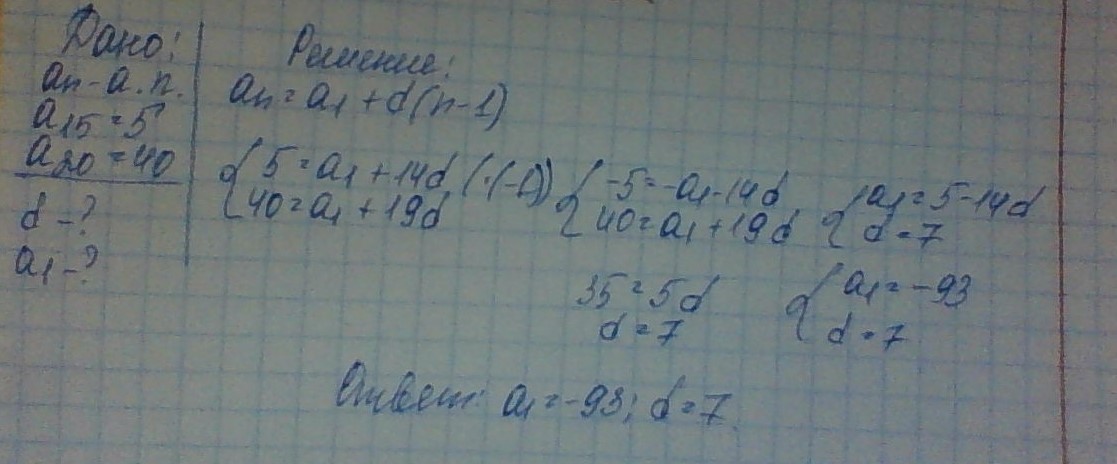 Дано:
an - а.п.
a15 = 5
a20 = 40
d - ?
a1 - ?
Решение:
an = a1 + d(n-1)
{ 5 = a1 + 14d (·(-1)) { -5 = -a1 - 14d { a1 = 5 - 14d
{ 40 = a1 + 19d { 40 = a1 + 19d { d = 7
35 = 5d { a1 = -93
d = 7 { d = 7
Ответ: a1 = -93; d = 7